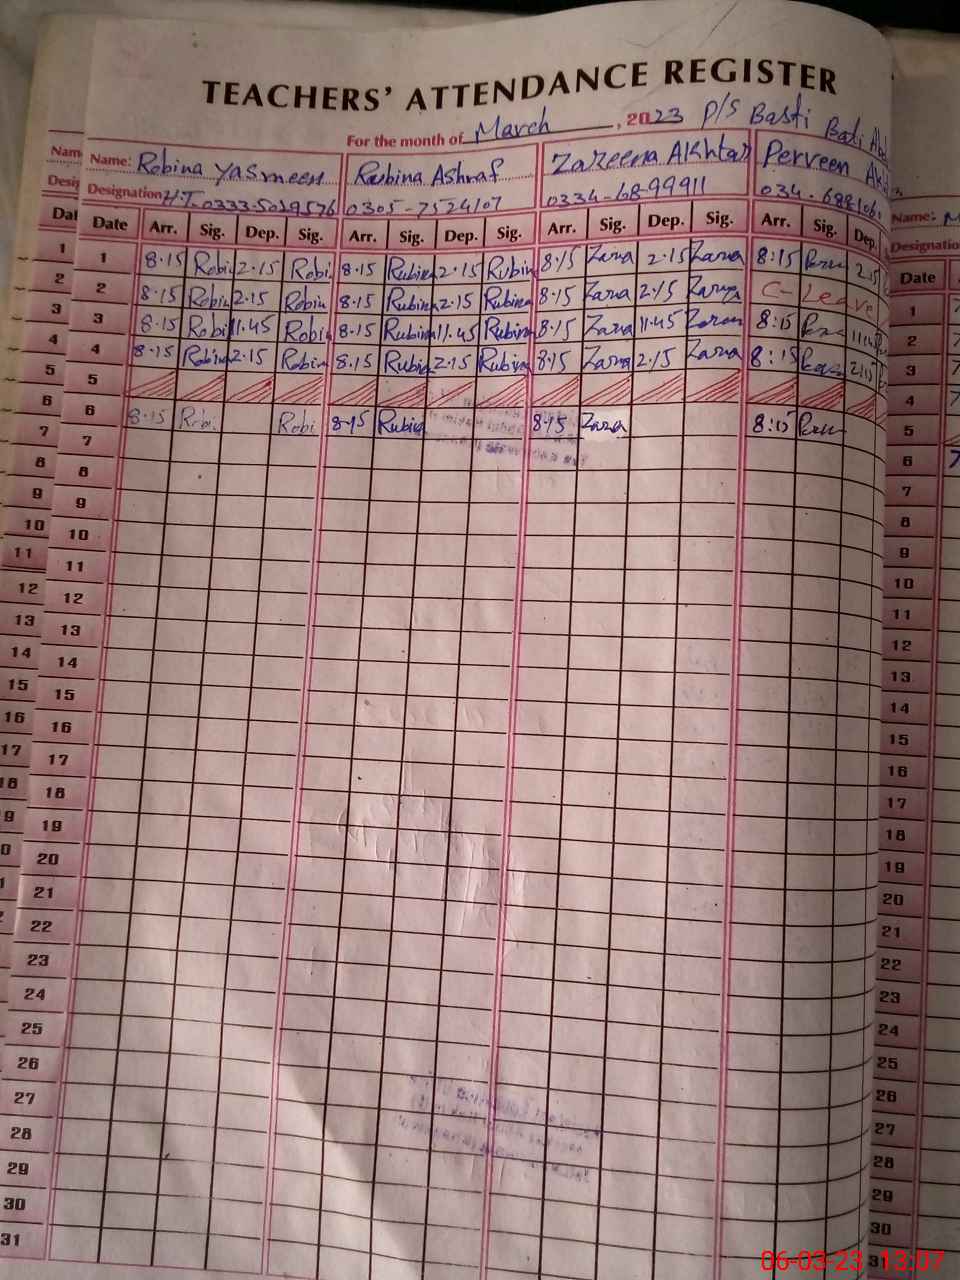 TEACHERS' ATTENDANCE REGISTER
For the month of March, 2023 P/S Basti
Name: Robina Yasmeen Rubina Ashraf Zareena Akhtar Perveen
Designation H.T. 0333-5029576 0305-7524107 0334-68-99911
Date Arr. Sig. Dep. Sig. Arr. Sig. Dep. Sig. Arr. Sig. Dep. Sig. Arr. Sig. Dep.
1 8.15 Robi 2.15 Robi 8.15 Rubina 2.15 Rubina 8.15 Zarna 2.15 Zarna 8:15 2:15
2 8.15 Robin 2.15 Robin 8.15 Rubina 2.15 Rubina 8.15 Zarna 2.15 Zarna C- Leave
3 8.15 Robi 11.45 Robi 8.15 Rubina 11.45 Rubina 8.15 Zarna 11.45 8:15
4 8.15 Robina 2.15 Robin 8.15 Rubina 2.15 Rubina 8.15 Zarna 2.15 Zarna 8:15 2:15
5
6 8.15 Robi Robi 8.15 Rubina 8.15 Zarna 8:15
7
8
9
10
11
12
13
14
15
16
17
18
19
20
21
22
23
24
25
26
27
28
29
30
31
Name:
Designation
Date
1
2
3
4
5
6
7
8
9
10
11
12
13
14
15
16
17
18
19
20
21
22
23
24
25
26
27
28
29
30
31
06-03-23 13:07